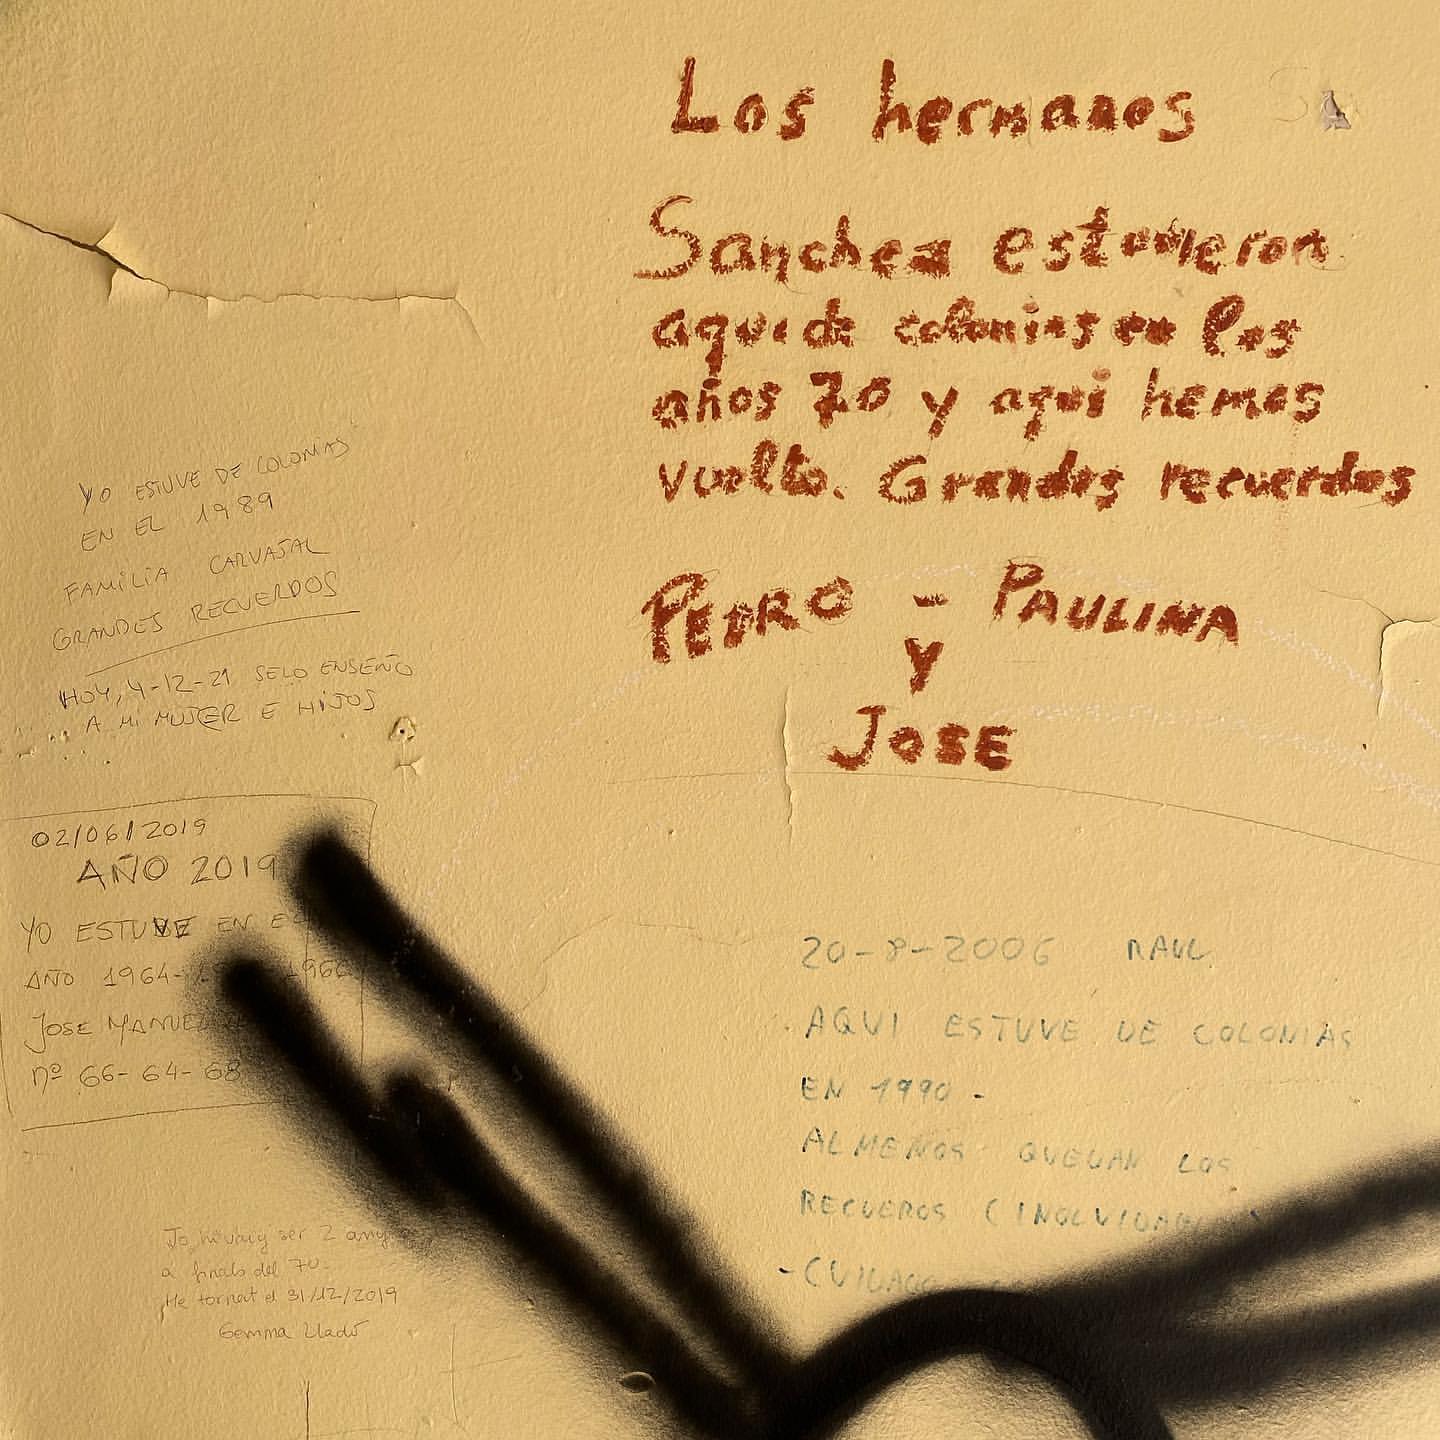 Los hermanos
Sanchez estuvieron
aqui de colonias en los
años 70 y aqui hemos
vuelto. Grandes recuerdos
PEDRO - PAULINA
y
JOSE
YO ESTUVE DE COLONIAS
EN EL 1989
FAMILIA CARVAJAL
GRANDES RECUERDOS
HOY, 4-12-21 SELO ENSEÑO
A MI MUJER E HIJOS
02/06/2019
AÑO 2019
YO ESTUVE EN EL
AÑO 1964-
JOSE MANUEL
nº 66-64-68
20-8-2006 RAUL
AQUI ESTUVE DE COLONIAS
EN 1990-
ALMENOS QUEDAN LOS
RECUEROS
Jo hi vaig ser 2 anys
a finals del 70.
He tornat el 31/12/2019
Gemma Lladó